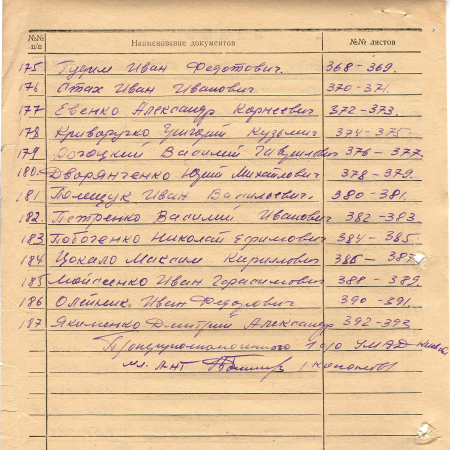 №№ п/п Наименование документов №№ листов
175 Гудим Иван Федотович. 368-369.
176 Стах Иван Иванович. 370-371.
177 Евенко Александр Корнеевич 372-373.
178 Криворучко Григорий Кузьмич 374-375.
179 Рогацкий Василий Гаврилович 376-377.
180. Дворянченко Юрий Михайлович 378-379.
181 Полещук Иван Васильевич. 380-381.
182. Петренко Василий Иванович 382-383
183 Побоченко Николай Ефимович 384-385.
184 Цокало Максим Кириллович 386-387
185 Мойсеенко Иван Герасимович 388-389.
186 Олейник Иван Федорович 390-391.
187 Якименко Дмитрий Александр 392-393
1 о/о УМВД
мл. л-нт